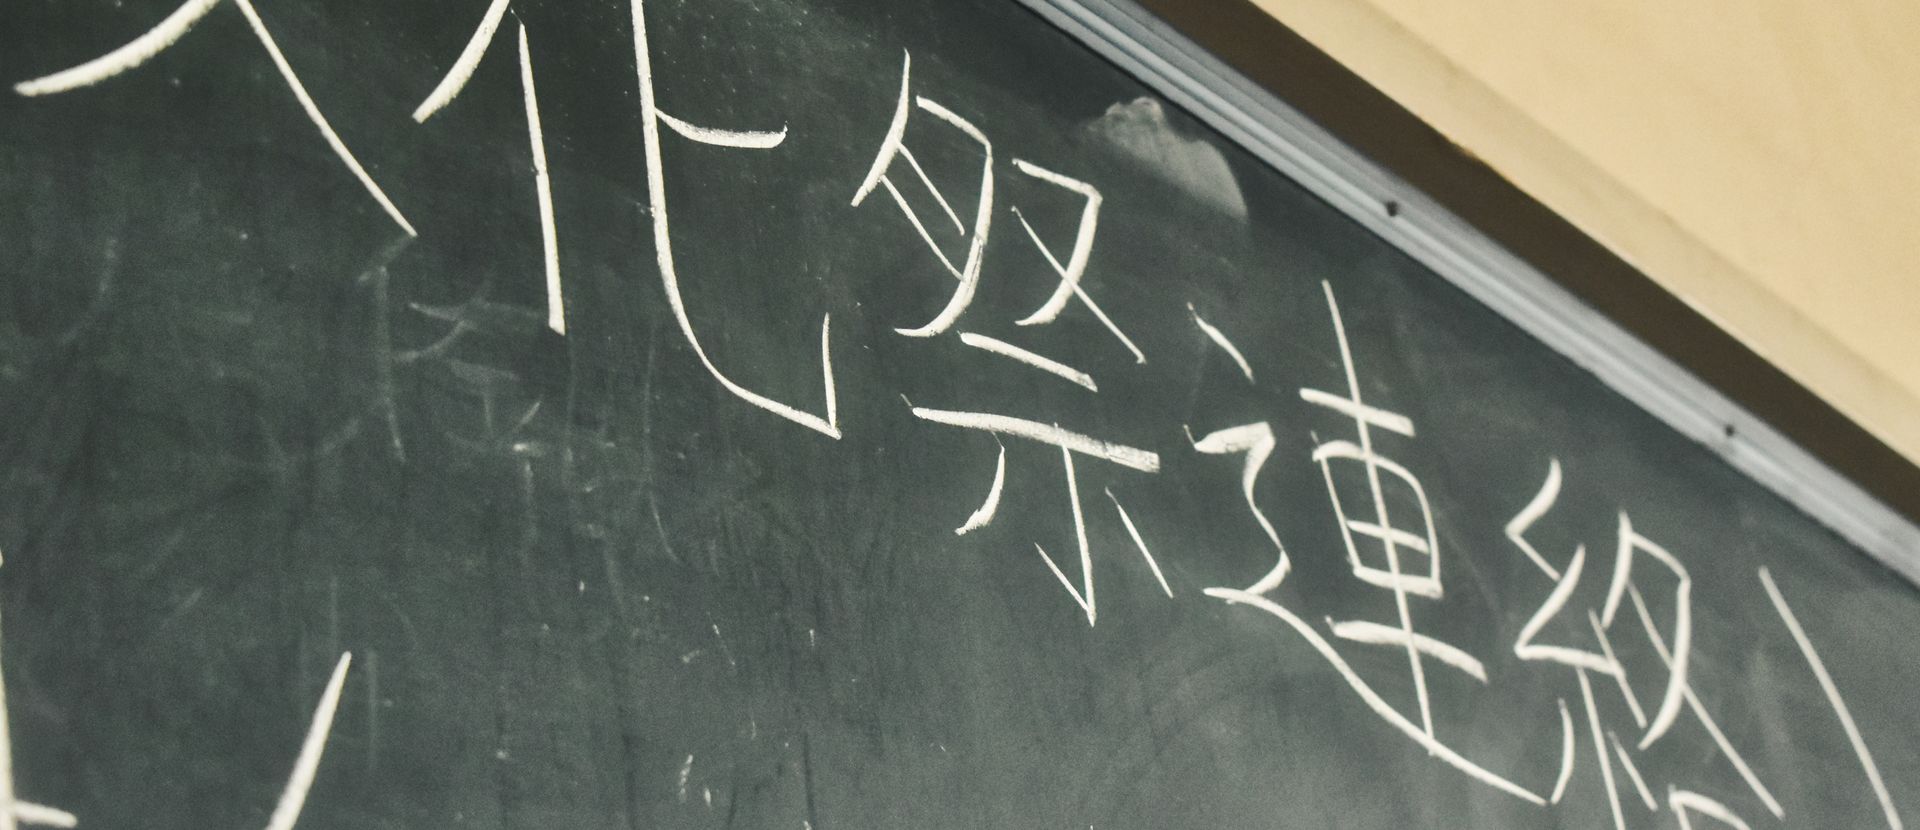 文化祭連絡